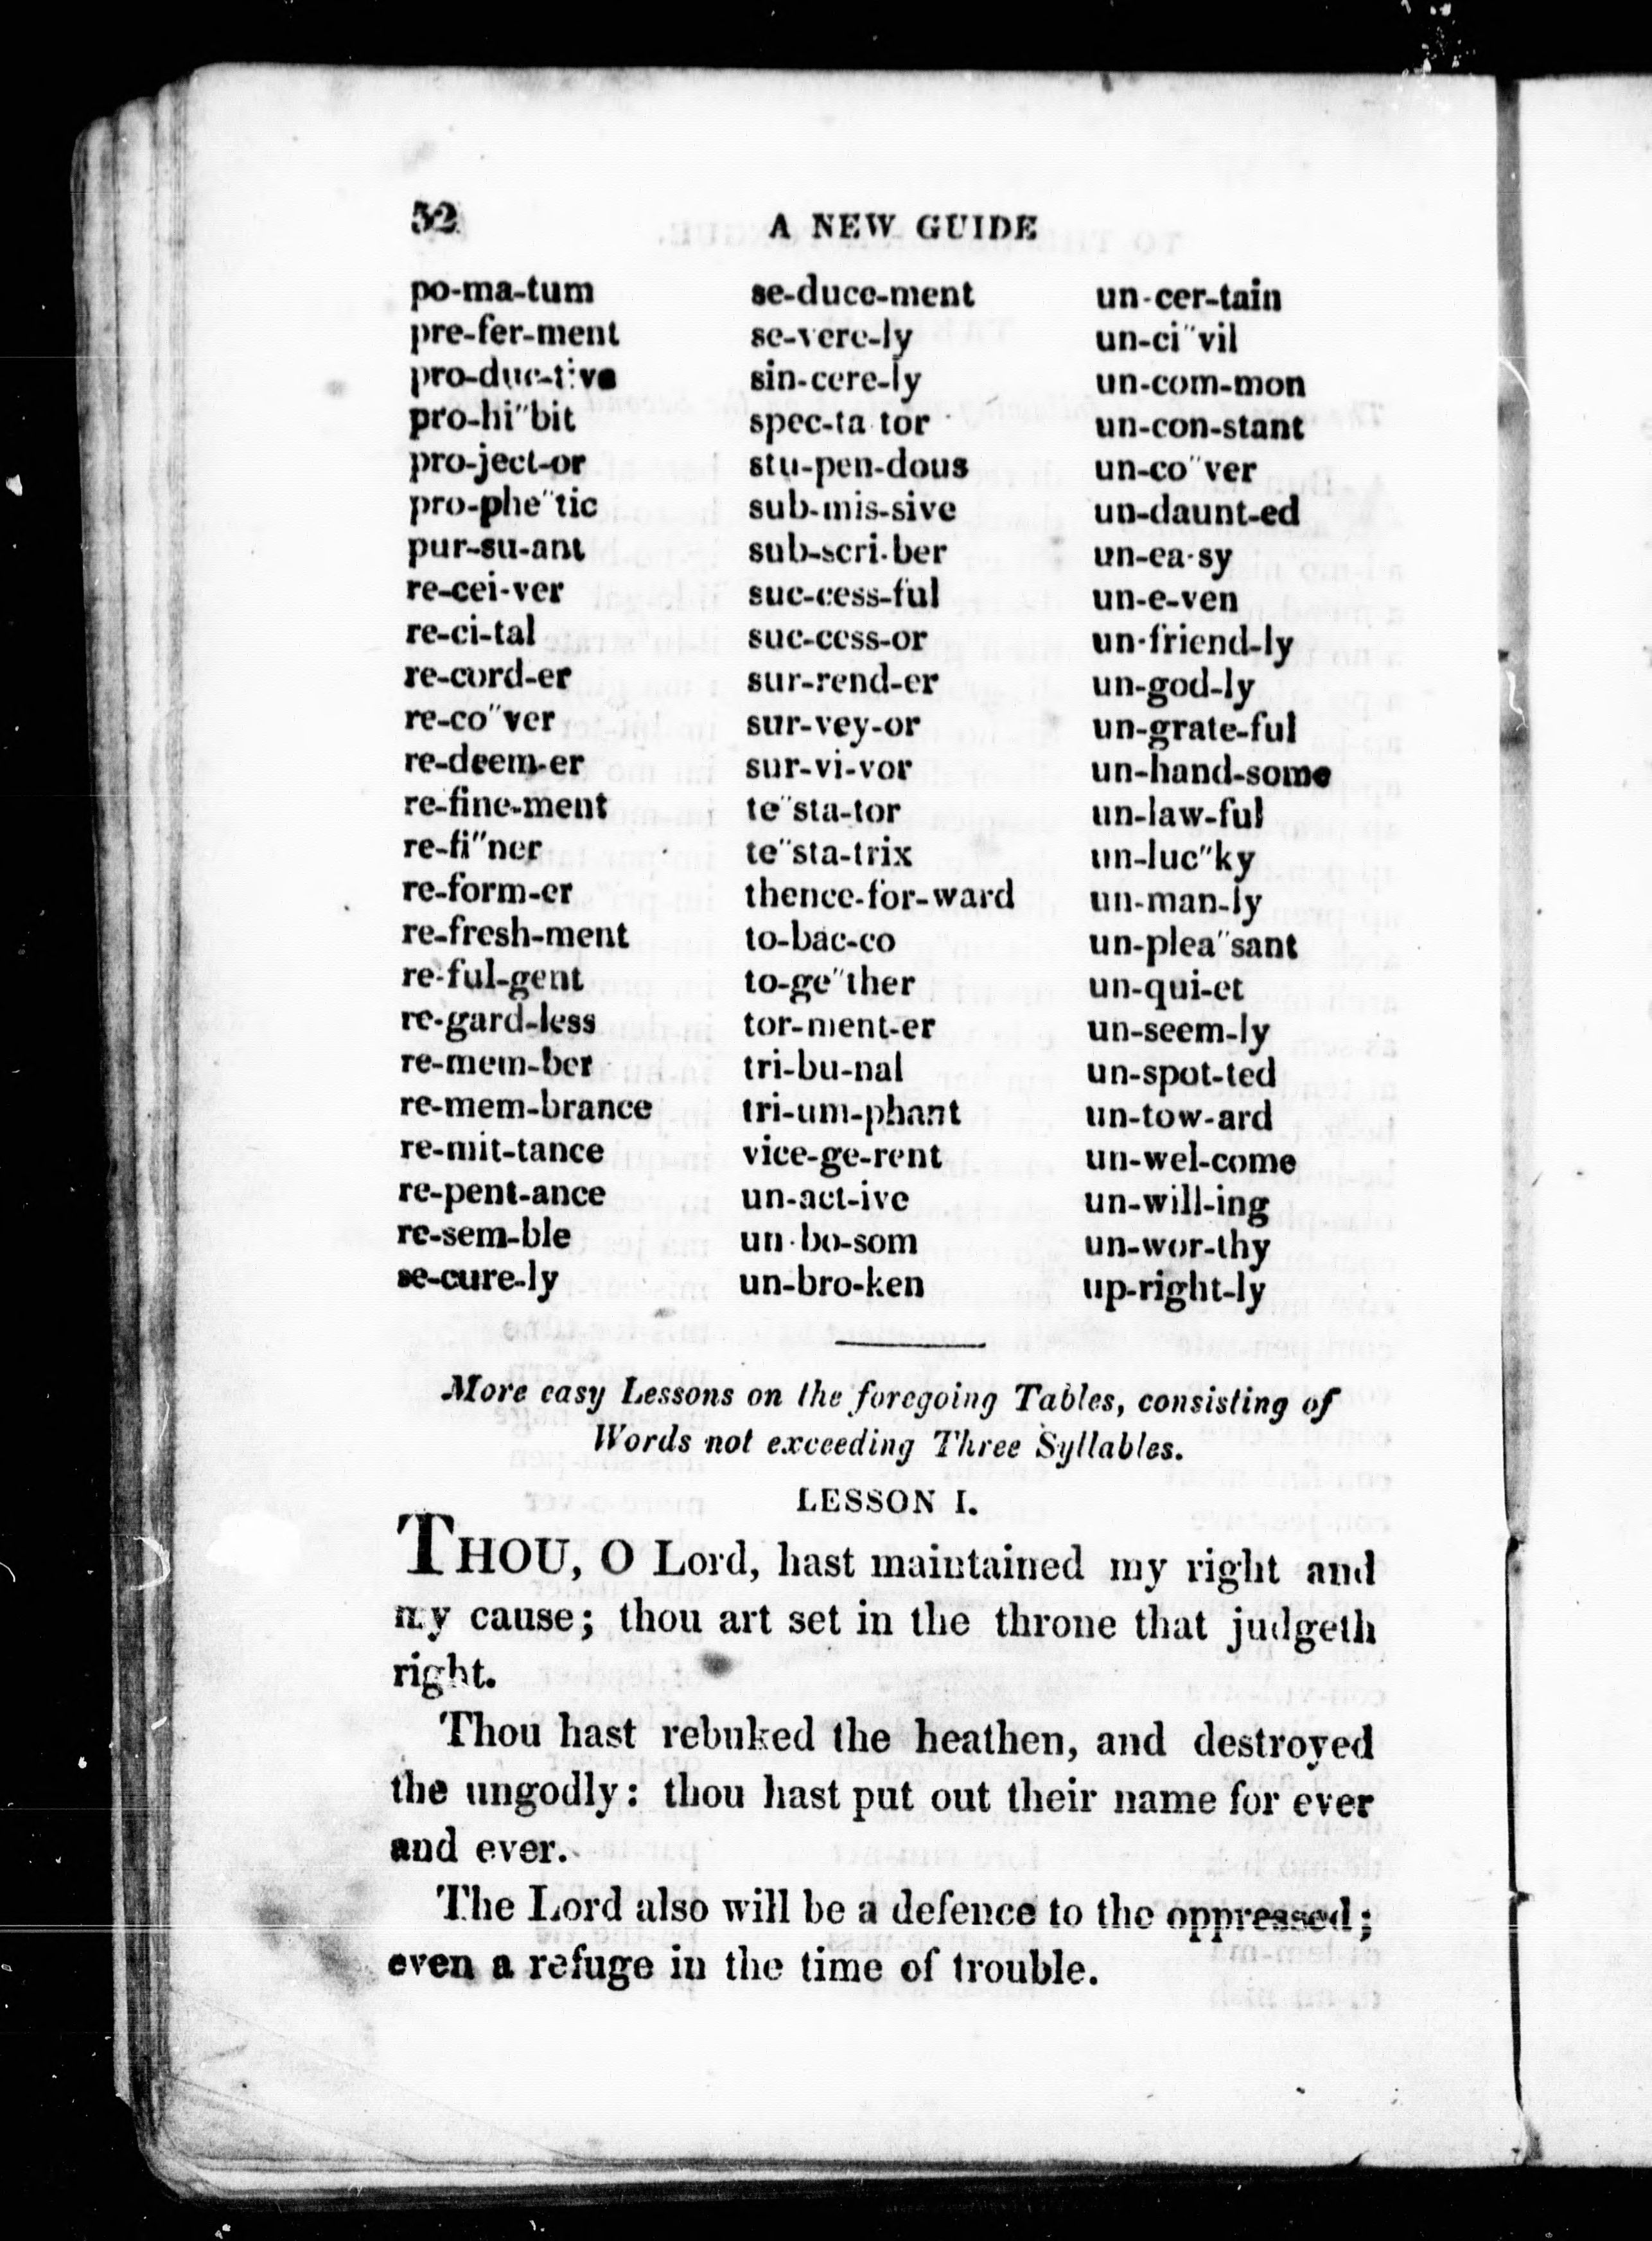 52
A NEW GUIDE
po-ma-tum
pre-fer-ment
pro-duc-tive
pro-hi"bit
pro-ject-or
pro-phe"tic
pur-su-ant
re-cei-ver
re-ci-tal
re-cord-er
re-co"ver
re-deem-er
re-fine-ment
re-fi"ner
re-form-er
re-fresh-ment
re-ful-gent
re-gard-less
re-mem-ber
re-mem-brance
re-mit-tance
re-pent-ance
re-sem-ble
se-cure-ly
se-duce-ment
se-vere-ly
sin-cere-ly
spec-ta tor
stu-pen-dous
sub-mis-sive
sub-scri-ber
suc-cess-ful
suc-cess-or
sur-rend-er
sur-vey-or
sur-vi-vor
te"sta-tor
te"sta-trix
thence-for-ward
to-bac-co
to-ge"ther
tor-ment-er
tri-bu-nal
tri-um-phant
vice-ge-rent
un-act-ive
un-bo-som
un-bro-ken
un-cer-tain
un-ci"vil
un-com-mon
un-con-stant
un-co"ver
un-daunt-ed
un-ea-sy
un-e-ven
un-friend-ly
un-god-ly
un-grate-ful
un-hand-some
un-law-ful
un-luc"ky
un-man-ly
un-plea"sant
un-qui-et
un-seem-ly
un-spot-ted
un-tow-ard
un-wel-come
un-will-ing
un-wor-thy
up-right-ly
More easy Lessons on the foregoing Tables, consisting of
Words not exceeding Three Syllables.
LESSON I.
THOU, O Lord, hast maintained my right and
my cause; thou art set in the throne that judgeth
right.
Thou hast rebuked the heathen, and destroyed
the ungodly: thou hast put out their name for ever
and ever.
The Lord also will be a defence to the oppressed;
even a refuge in the time of trouble.